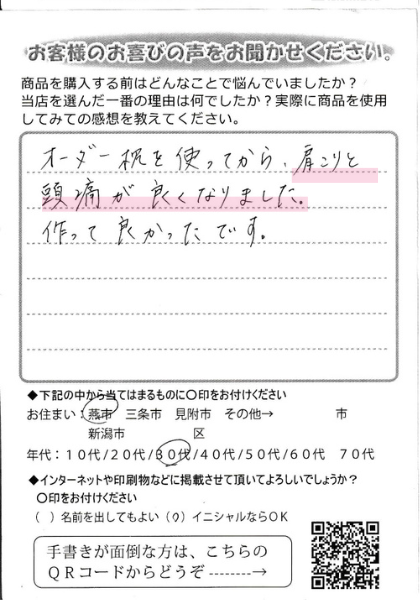 お客様のお喜びの声をお聞かせください。
商品を購入する前はどんなことで悩んでいましたか？
当店を選んだ一番の理由は何でしたか？実際に商品を使用
してみての感想を教えてください。
オーダー枕を使ってから、肩こりと
頭痛が良くなりました。
作って良かったです。
◆下記の中から当てはまるものに〇印をお付けください
お住まい：燕市 三条市 見附市 その他→ 市
新潟市 区
年代：10代/20代/30代/40代/50代/60代 70代
◆インターネットや印刷物などに掲載させて頂いてよろしいでしょうか？
〇印をお付けください
（ ）名前を出してもよい（〇）イニシャルならＯＫ
手書きが面倒な方は、こちらの
ＱＲコードからどうぞ --------→